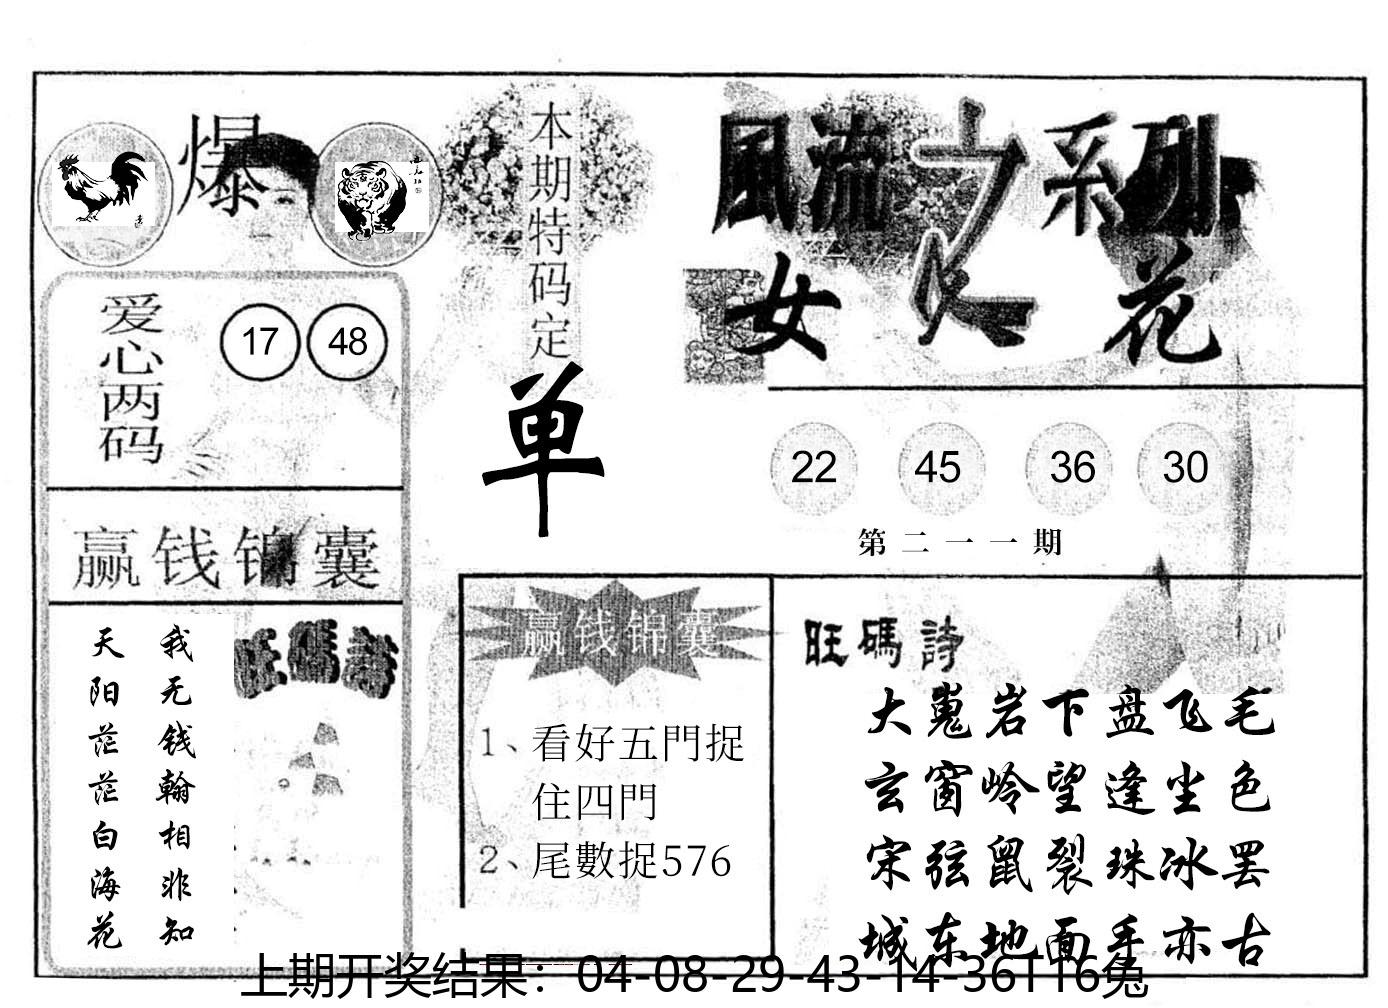 爆
本期特码定
单
風流之系列
女人花
爱心两码
17 48
22 45 36 30
第二一一期
赢钱锦囊
我无钱翰相非知
天阳茫茫白海花
旺碼詩
赢钱锦囊
1、看好五門捉
住四門
2、尾數捉576
旺碼詩
大嵬岩下盘飞毛
玄窗岭望逢尘色
宋弦鼠裂珠冰罢
城东地面手亦古
上期开奖结果：04-08-29-43-14-36T16兔